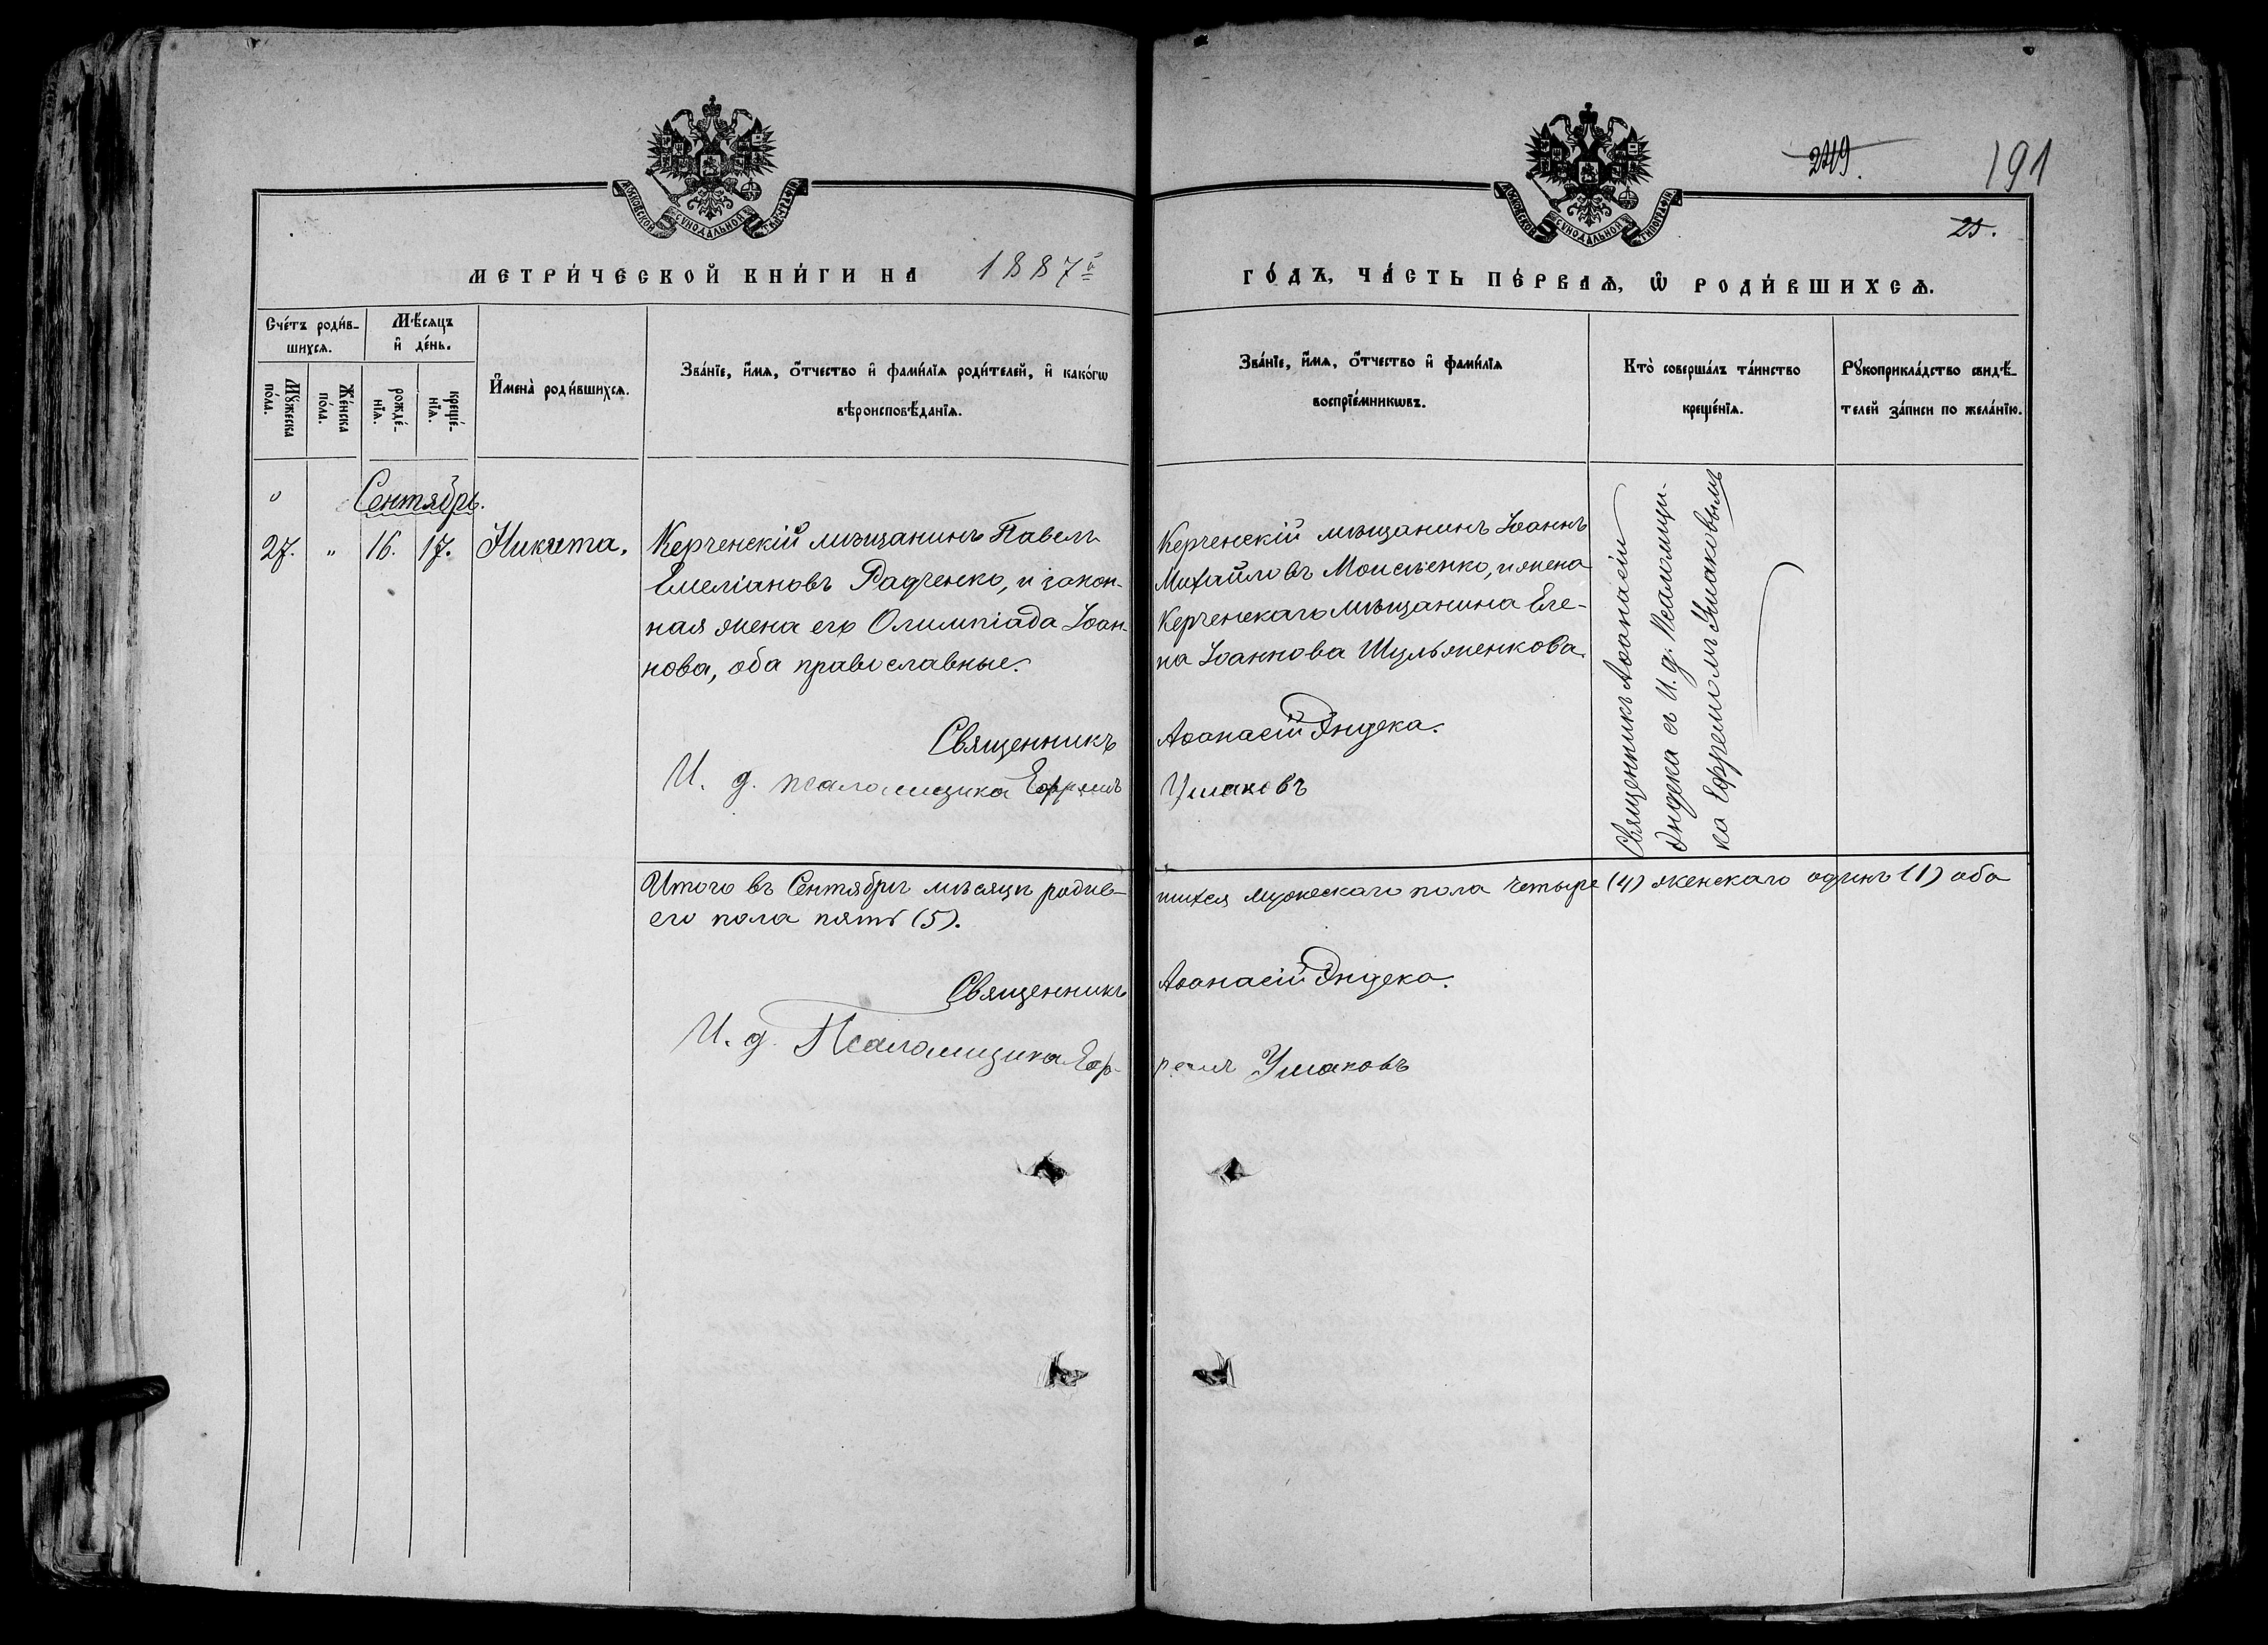 249.
191
25.
МОСКОВСКОЙ СѴНОДАЛЬНОЙ ТИПОГРАФІИ
МОСКОВСКОЙ СѴНОДАЛЬНОЙ ТИПОГРАФІИ
МЕТРИ́ЧЕСКОЙ КНИ́ГИ НА 1887й
ГО́ДЪ, ЧА́СТЬ ПЕ́РВАѦ, Ѡ҆ РОДИ́ВШИХСѦ.
Сче́тъ роди́в-
шихсѧ.
Мꙋ́жеска
по́ла.
Же́нска
по́ла.
Мѣ́сѧцъ
и҆ де́нь.
рожде́-
нїѧ.
креще́-
нїѧ.
И҆мена̀ роди́вшихсѧ.
Зва́нїе, и҆́мѧ, ѻ҆́тчество и҆ фами́лїѧ роди́телей, и҆ како́гѡ
вѣроисповѣ́данїѧ.
Зва́нїе, и҆́мѧ, ѻ҆́тчество и҆ фами́лїѧ
воспрїе́мникѡвъ.
Кто̀ соверша́лъ та́инство
креще́нїѧ.
Рꙋкоприкла́дство свидѣ́-
телей за́писи по жела́нїю.
Сентябрь.
27. " 16. 17. Никита.
Керченскій мѣщанинъ Павелъ
Емеліановъ Радченко, и закон-
ная жена его Олимпіада Іоан-
нова, оба православные.
Керченскій мѣщанинъ Іоаннъ
Михайловъ Моисѣенко, и жена
Керченскаго мѣщанина Еле-
на Іоаннова Шульженкова.
Священникъ Аѳанасій
Эндека съ И. д. Псаломщи-
ка Ефремомъ Ушаковымъ
Священникъ Аѳанасій Эндека.
И. д. псаломщика Ефремъ Ушаковъ
Итого въ Сентябрѣ мѣсяцѣ родив-
шихся мужескаго пола четыре (4) женскаго одинъ (1) обо
его пола пять (5).
Священникъ Аѳанасій Эндека.
И. д. Псаломщика Еф-
ремъ Ушаковъ